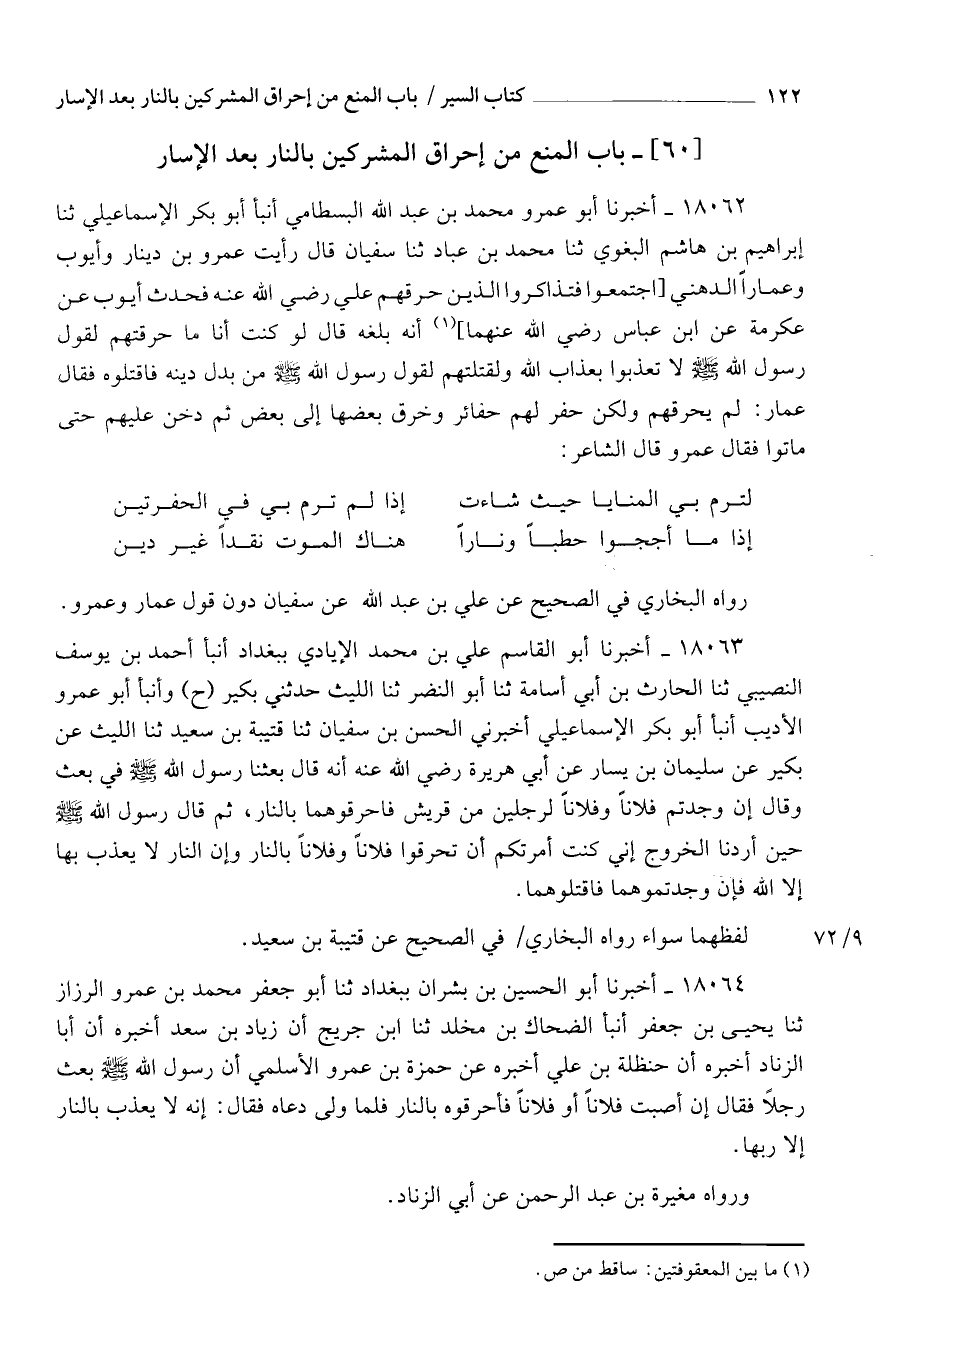 ١٢٢ ـــــــــــــ كتاب السير / باب المنع من إحراق المشركين بالنار بعد الإسار
[٦٠] ـ باب المنع من إحراق المشركين بالنار بعد الإسار
١٨٠٦٢ ـ أخبرنا أبو عمرو محمد بن عبد الله البسطامي أنبأ أبو بكر الإسماعيلي ثنا
إبراهيم بن هاشم البغوي ثنا محمد بن عباد ثنا سفيان قال رأيت عمرو بن دينار وأيوب
وعماراً الدهني [اجتمعوا فتذاكروا الذين حرقهم علي رضي الله عنه فحدث أيوب عن
عكرمة عن ابن عباس رضي الله عنهما](١) أنه بلغه قال لو كنت أنا ما حرقتهم لقول
رسول الله ﷺ لا تعذبوا بعذاب الله ولقتلتهم لقول رسول الله ﷺ من بدل دينه فاقتلوه فقال
عمار: لم يحرقهم ولكن حفر لهم حفائر وخرق بعضها إلى بعض ثم دخن عليهم حتى
ماتوا فقال عمرو قال الشاعر:
لترم بي المنايا حيث شاءت إذا لم ترم بي في الحفرتين
إذا ما أججوا حطباً وناراً هناك الموت نقداً غير دين
رواه البخاري في الصحيح عن علي بن عبد الله عن سفيان دون قول عمار وعمرو.
١٨٠٦٣ ـ أخبرنا أبو القاسم علي بن محمد الإيادي ببغداد أنبأ أحمد بن يوسف
النصيبي ثنا الحارث بن أبي أسامة ثنا أبو النضر ثنا الليث حدثني بكير (ح) وأنبأ أبو عمرو
الأديب أنبأ أبو بكر الإسماعيلي أخبرني الحسن بن سفيان ثنا قتيبة بن سعيد ثنا الليث عن
بكير عن سليمان بن يسار عن أبي هريرة رضي الله عنه أنه قال بعثنا رسول الله ﷺ في بعث
وقال إن وجدتم فلاناً وفلاناً لرجلين من قريش فاحرقوهما بالنار، ثم قال رسول الله ﷺ
حين أردنا الخروج إني كنت أمرتكم أن تحرقوا فلاناً وفلاناً بالنار وإن النار لا يعذب بها
إلا الله فإن وجدتموهما فاقتلوهما.
٧٢/٩ لفظهما سواء رواه البخاري/ في الصحيح عن قتيبة بن سعيد.
١٨٠٦٤ ـ أخبرنا أبو الحسين بن بشران ببغداد ثنا أبو جعفر محمد بن عمرو الرزاز
ثنا يحيى بن جعفر أنبأ الضحاك بن مخلد ثنا ابن جريج أن زياد بن سعد أخبره أن أبا
الزناد أخبره أن حنظلة بن علي أخبره عن حمزة بن عمرو الأسلمي أن رسول الله ﷺ بعث
رجلاً فقال إن أصبت فلاناً أو فلاناً فأحرقوه بالنار فلما ولى دعاه فقال: إنه لا يعذب بالنار
إلا ربها.
ورواه مغيرة بن عبد الرحمن عن أبي الزناد.
(١) ما بين المعقوفتين: ساقط من ص.